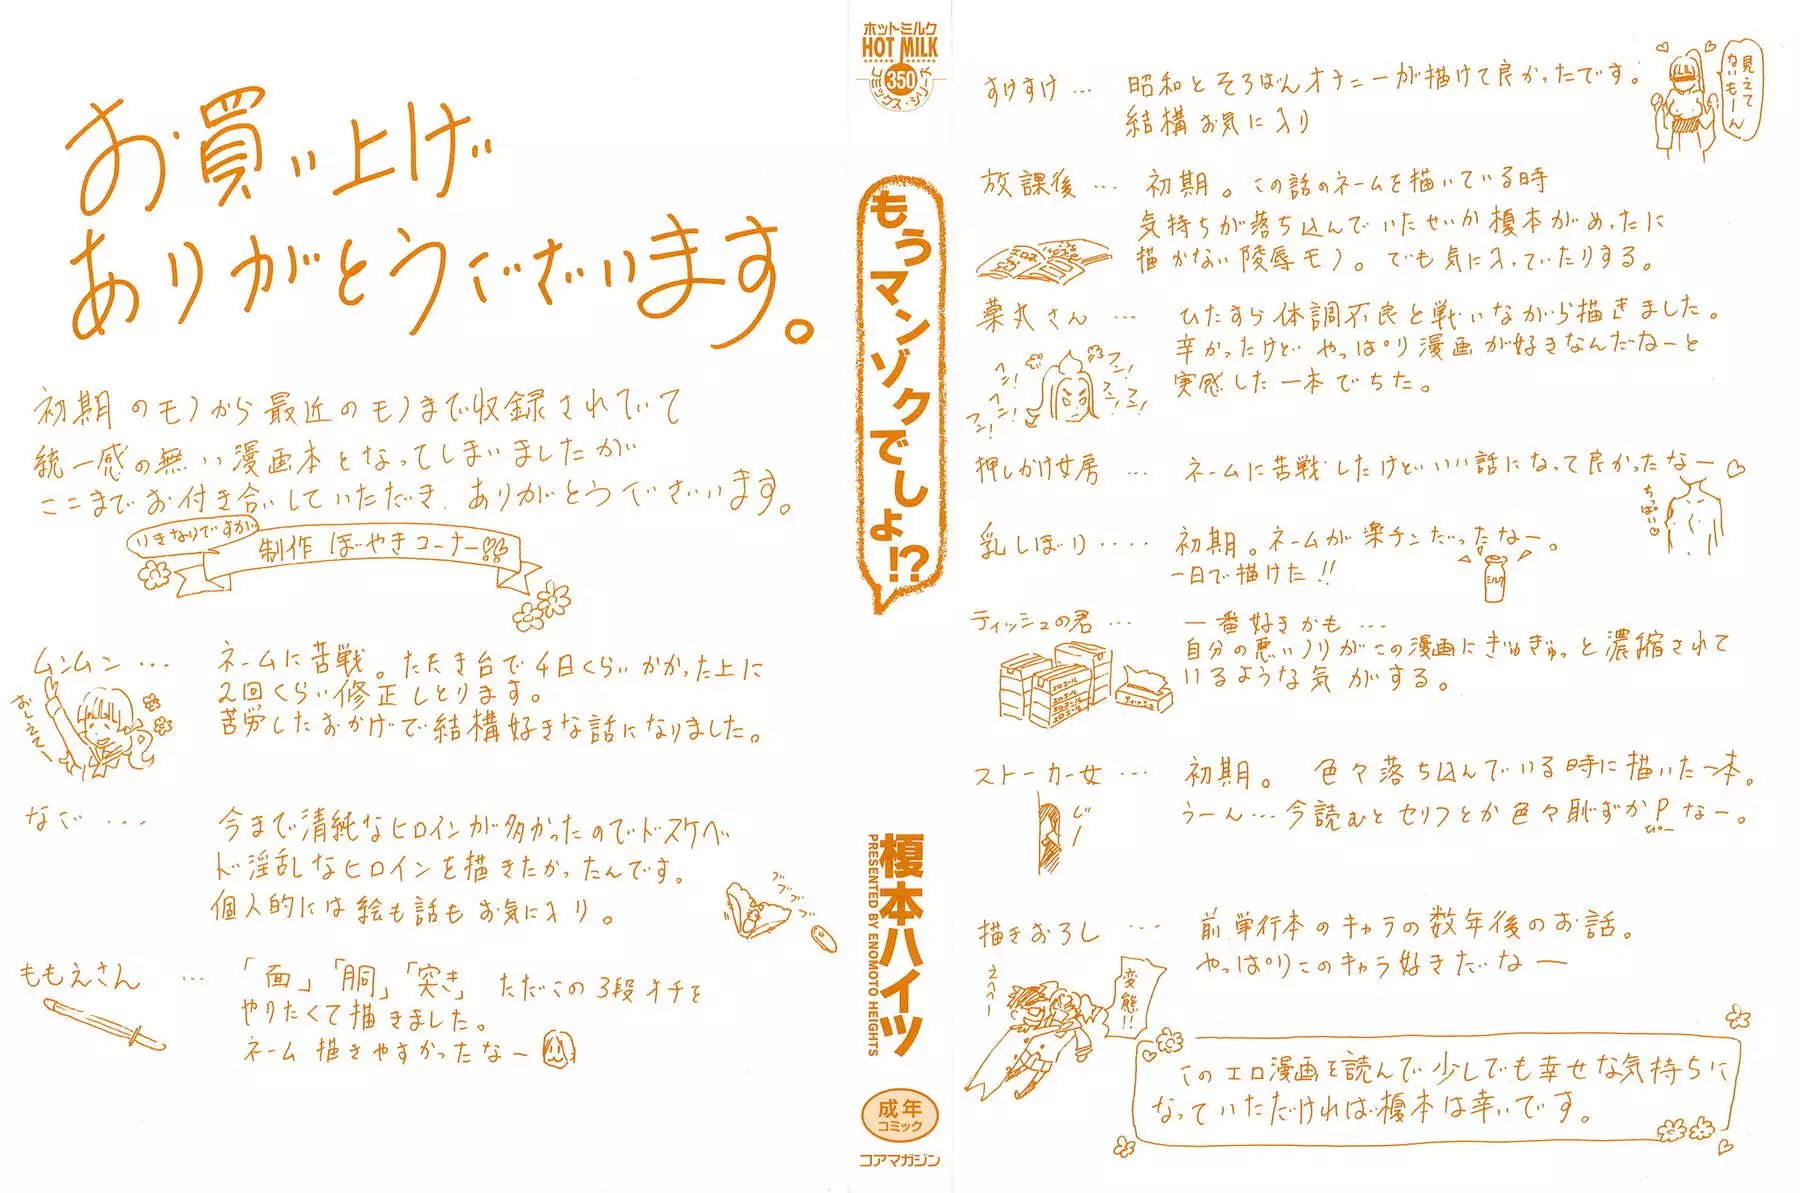 お買い上げ
ありがとうございます。
初期のモノから最近のモノまで収録されていて
統一感の無い漫画本となってしまいましたが
ここまでお付き合いしていただき、ありがとうございます。
いきなりですが
制作 ぼやきコーナー!!
ムンムン…
おしえてー
ネームに苦戦。たたき台で4日くらいかかった上に
2回くらい修正しとります。
苦労したおかげで結構好きな話になりました。
なご…
今まで清純なヒロインが多かったのでドスケベ
ド淫乱なヒロインを描きたかったんです。
個人的には絵も話もお気に入り。
ブブブブブ
ももえさん …
「面」「胴」「突き」ただこの3段オチを
やりたくて描きました。
ネーム描きやすかったなー
ホットミルク
HOT MILK
コミックス・シリーズ
350
もうマンゾクでしょ!?
榎本ハイツ
PRESENTED BY ENOMOTO HEIGHTS
成年
コミック
コアマガジン
すけすけ… 昭和とそろばんオナニーが描けて良かったです。
結構お気に入り
見えて
ないもーん
放課後… 初期。この話のネームを描いている時
気持ちが落ち込んでいたせいか榎本がめったに
描かない陵辱モノ。でも気に入っていたりする。
薬丸さん … ひたすら体調不良と戦いながら描きました。
辛かったけど やっぱり漫画が好きなんだなーと
実感した一本でした。
フン! フン! フン! フン! フン!
押しかけ女房 … ネームに苦戦したけどいい話になって良かったなー♡
ちっぱい♡
乳しぼり…. 初期。ネームが楽チンだったなー。
一日で描けた!!
ミルク
ティッシュの君… 一番好きかも…
自分の悪いノリがこの漫画にぎゅぎゅっと濃縮されて
いるような気がする。
エロエール
ティッシュ
ストーカー女… 初期。 色々落ち込んでいる時に描いた一本。
うーん…今読むとセリフとか色々恥ずかPなー。
ぴー
じー
描きおろし … 前単行本のキャラの数年後のお話。
やっぱりこのキャラ好きだなー
えへへー
変態!!
このエロ漫画を読んで少しでも幸せな気持ちに
なっていただければ榎本は幸いです。